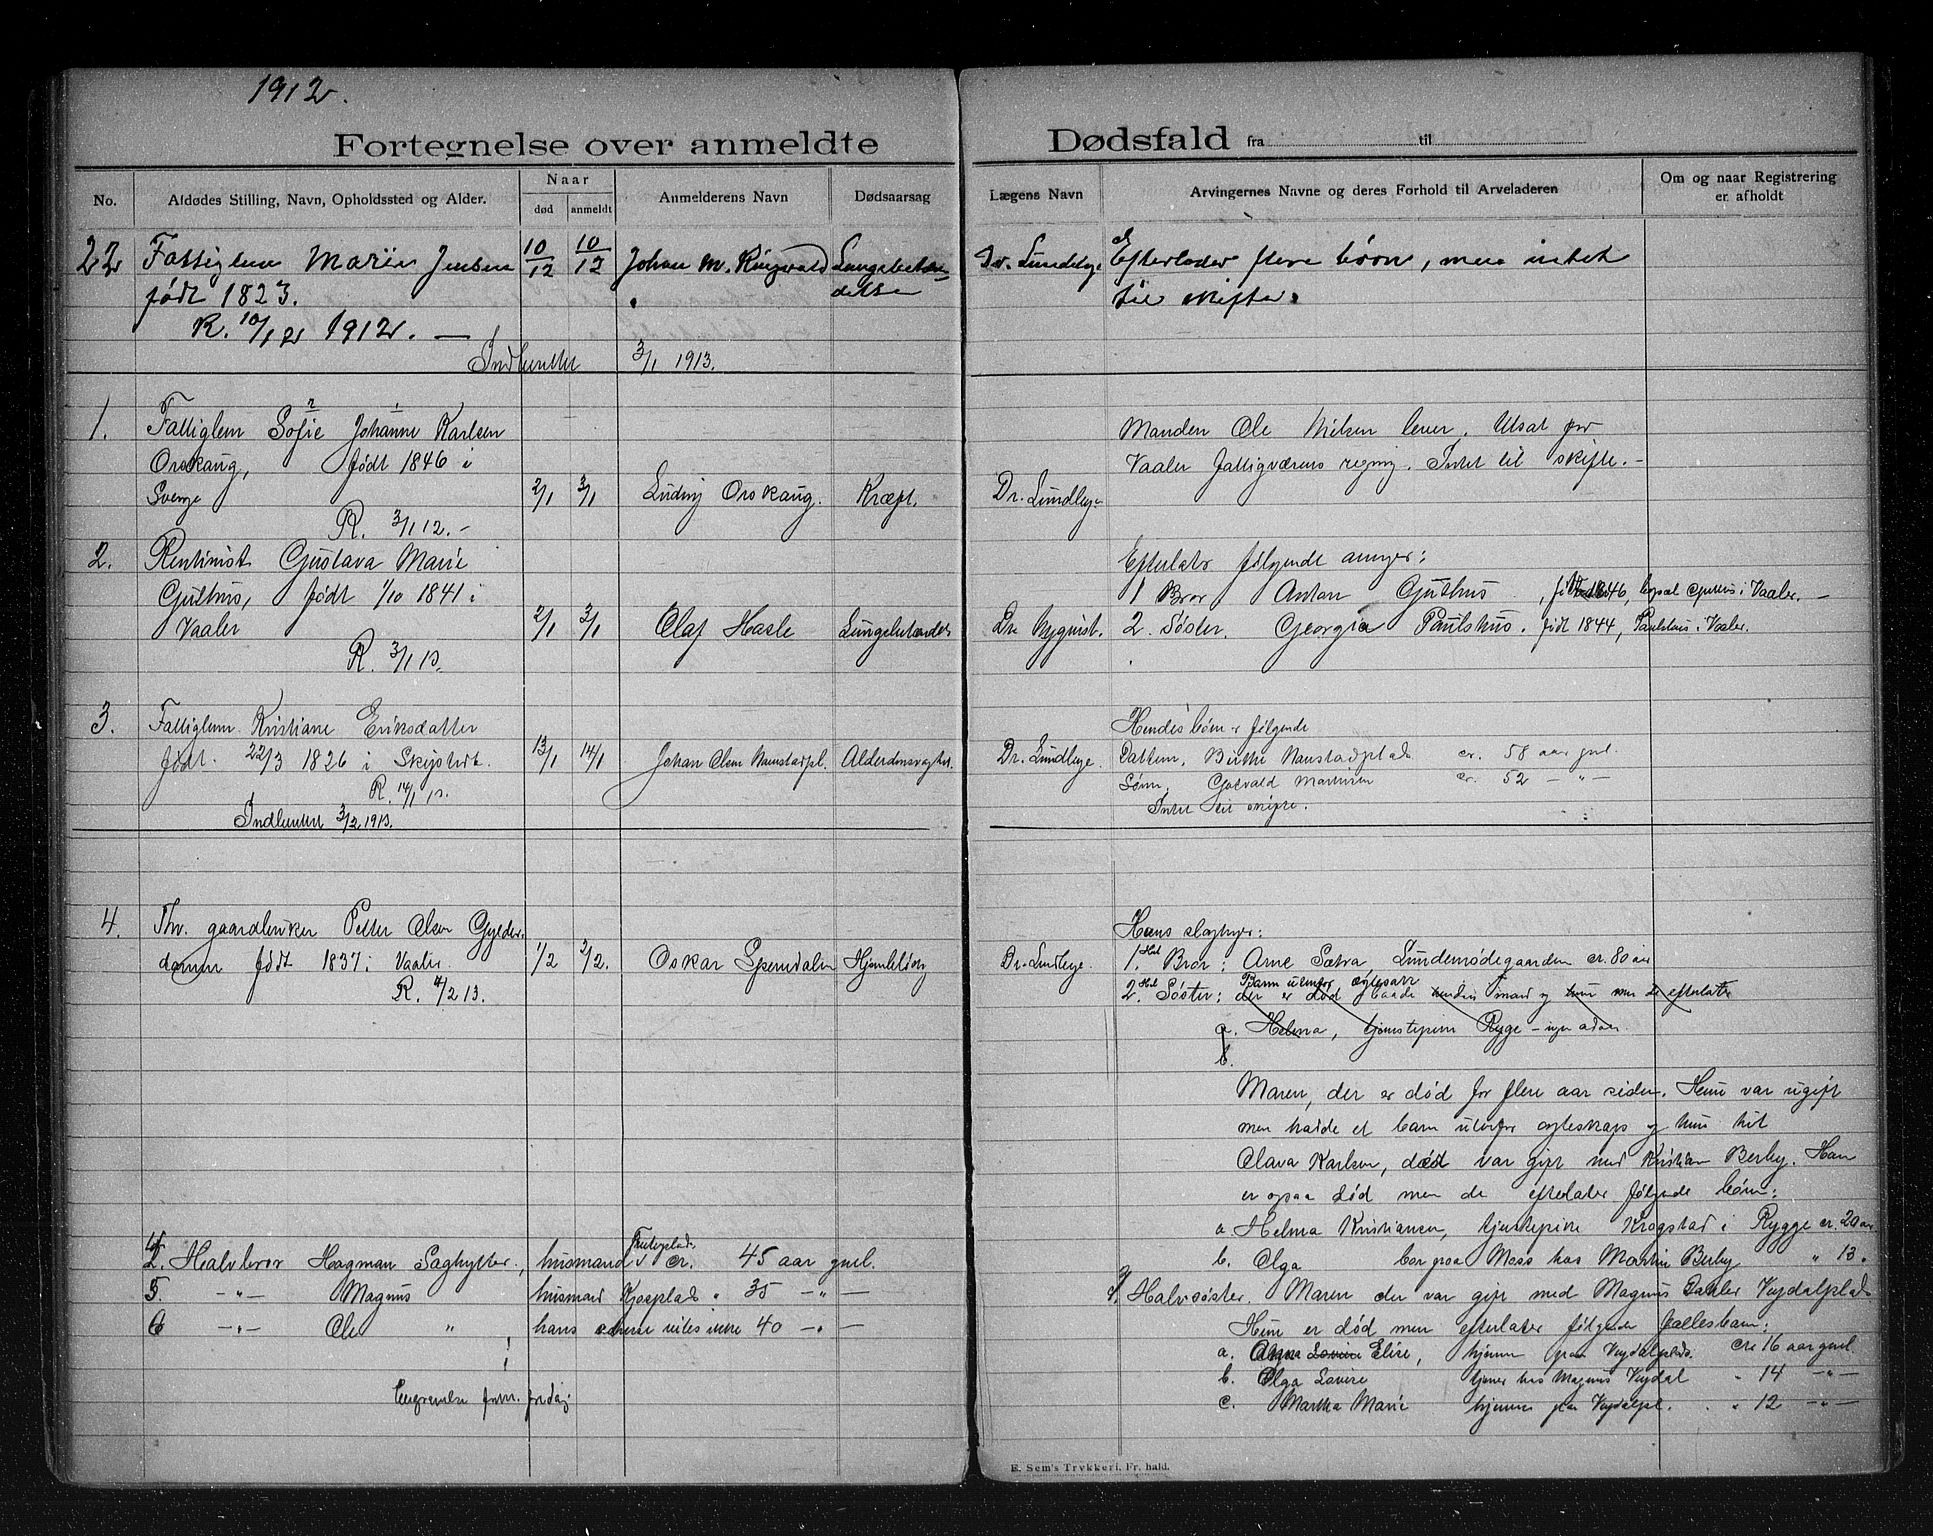 1912.
Fortegnelse over anmeldte Dødsfald fra til
No.
Afdødes Stilling, Navn, Opholdssted og Alder.
Naar
død
anmeldt
Anmelderens Navn
Dødsaarsag
Lægens Navn
Arvingernes Navne og deres Forhold til Arveladeren
Om og naar Registrering
er afholdt
22 Fattiglem Marie Jensen 10/12 10/12 Johan M. Ringvold Lungebetæn-
delse
født 1823.
R. 10/12 1912. —
Dr. Lundbye Efterlader flere børn, men intet
til skifte.
Indberettet 3/1 1913.
1. Fattiglem Sofie Johanne Karlsen
Orskaug, født 1846 i
Sverige 2/1 3/1 Ludvig Orskaug. Kræft.
R. 3/1 12. -
Manden Ole Nilsen lever. Utsat for
Vaaler fattigvæsens regning. Intet til skifte. -
Dr. Lundbye
2. Rentenist Gustava Marie
Guthus, født 1/10 1841 i
Vaaler 2/1 3/1 Olaf Hasle Lungebetændels
R. 3/1 13.
Efterlater følgende arvinger:
1 Bror Anton Guthus, født 1846, bopæl Guthus i Vaaler. -
Dr. Nyquist. 2. Søster. Georgia Paulshus. født 1844, Paulshus i Vaaler.
3. Fattiglem Kristiane Eriksdatter
født. 22/3 1826 i Skiptvet. 13/1 14/1 Johan Olsen Navestadpl. Alderdomssvaghet.
R. 14/1 13.
Indberettet 3/2 1913.
Hendes børn er følgende
Dr. Lundbye. Datteren. Berthe Navestadplads cr. 58 aar gml.
Sønn. Gotvald Martinsen cr. 52 - " -
Intet til skifte.
4. Fhv. gaardbruker Petter Olsen Gylder-
dammen født 1837 i Vaaler. 1/2 3/2. Oskar Spenndalen Hjerteslag
R. 4/2 13.
Hans slegtninger:
Dr. Lundbye. 1. Hel Bror: Arne Sætra Lundemødegaarden cr. 80 aar
Barn utenfor egteskab
2. Hel Søster: der er død baade hendes mand og hun men de efterlater
a. Helma, tjenestepike Rygge -
b.
Maren, der er død for flere aar siden. Hun var ugift
men hadde et barn utenfor egteskap og hun het
Olava Karlsen, død var gift med Kristian Berby. Han
er ogsaa død men de efterlater følgende børn:
a. Helma Kristiansen, tjenestepike Krogstad i Rygge cr. 20 aar
b. Olga bor paa Moss hos Martin Berby " 13 "
3. Halvsøster. Maren der var gift med Magnus Vaaler Vejdalplads
Hun er død men efterlater følgende fællesbarn:
a. Anna Lovise Elise, hjemme paa Vejdalplads. cr. 16 aar gml.
b. Olga Lovise tjener hos Magnus Vejdal " 14 - " -
c. Martha Marie hjemme paa Vejdalpl. " 12 - " -
4. Halvbror Hagman Saghytter, husmand i cr. 45 aar gml.
5 - " - Magnus husmand Kjosplads " 35 - " -
6 - " - Ole " hans adresse vites ikke 40 - " -
E. Sem's Trykkeri, Fr.hald.